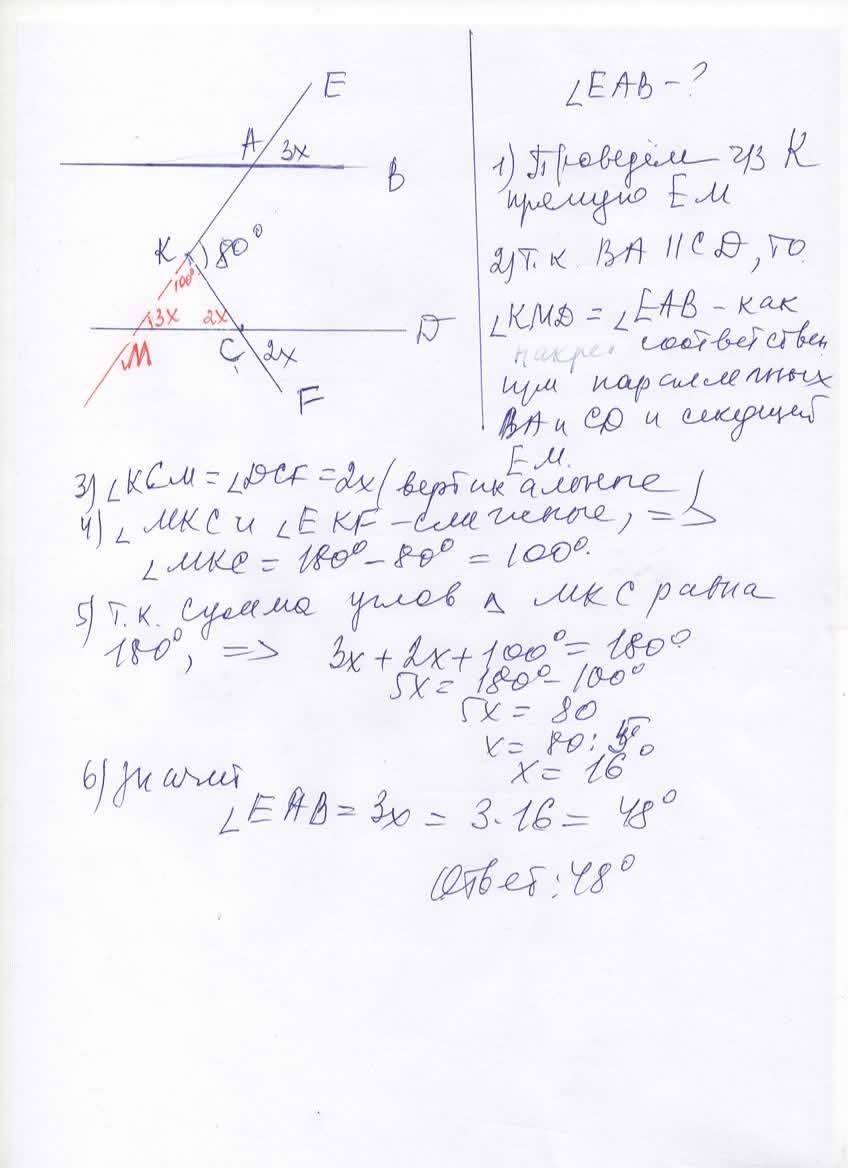 E
A 3x
B
K 80°
100°
3x 2x
M
C 2x
D
F
∠EAB - ?
1) Проведём ч/з K
прямую EM
2) т.к. BA || CD, то
∠KMD = ∠EAB - как
соответствен
при параллельных
BA и CD и секущей
EM.
3) ∠KCM = ∠DCF = 2x (вертикальные)
4) ∠MKC и ∠EKF - смежные, =>
∠MKC = 180° - 80° = 100°.
5) т.к. сумма углов △ MKC равна
180°, => 3x + 2x + 100° = 180°
5x = 180° - 100°
5x = 80
x = 80 : 5
x = 16°
6) значит
∠EAB = 3x = 3·16 = 48°
Ответ: 48°